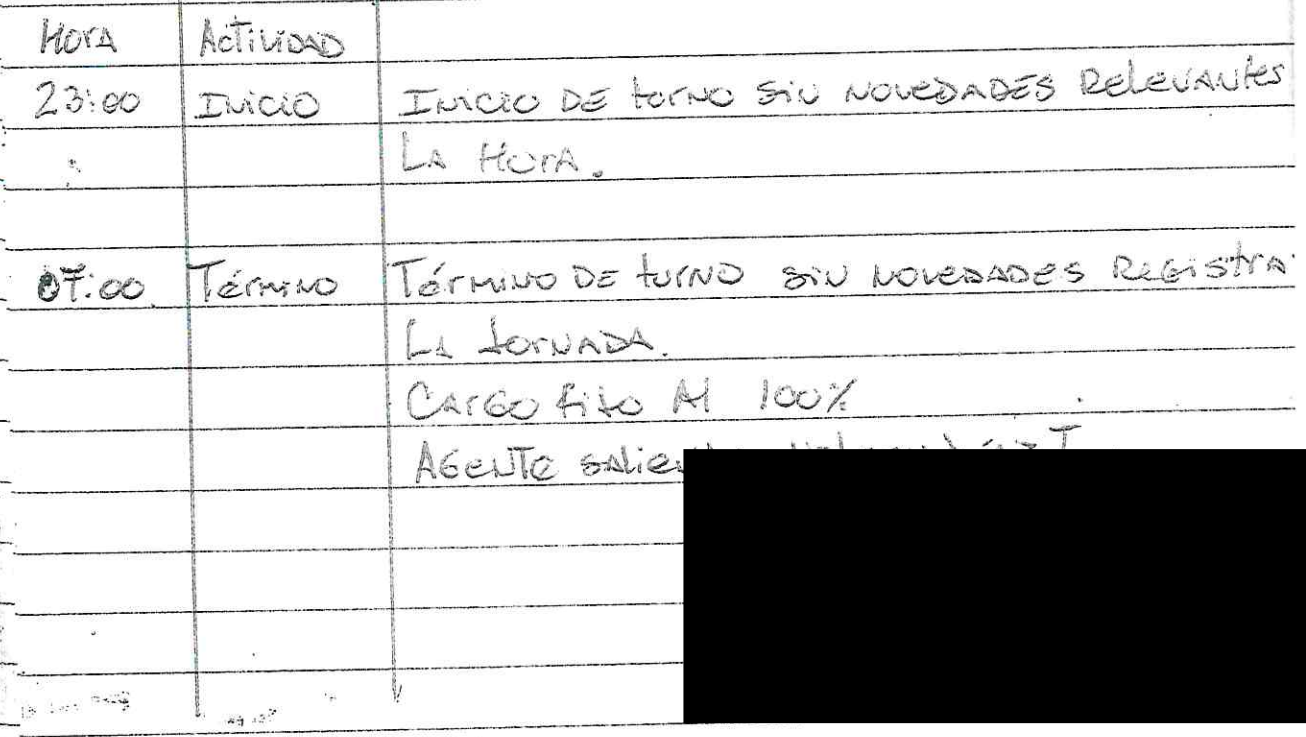 Hora Actividad
23:00 Inicio Inicio de turno sin novedades relevantes
La Hora.
07:00. Término Término de turno sin novedades registra
La Jornada.
Cargo fijo Al 100%
Agente